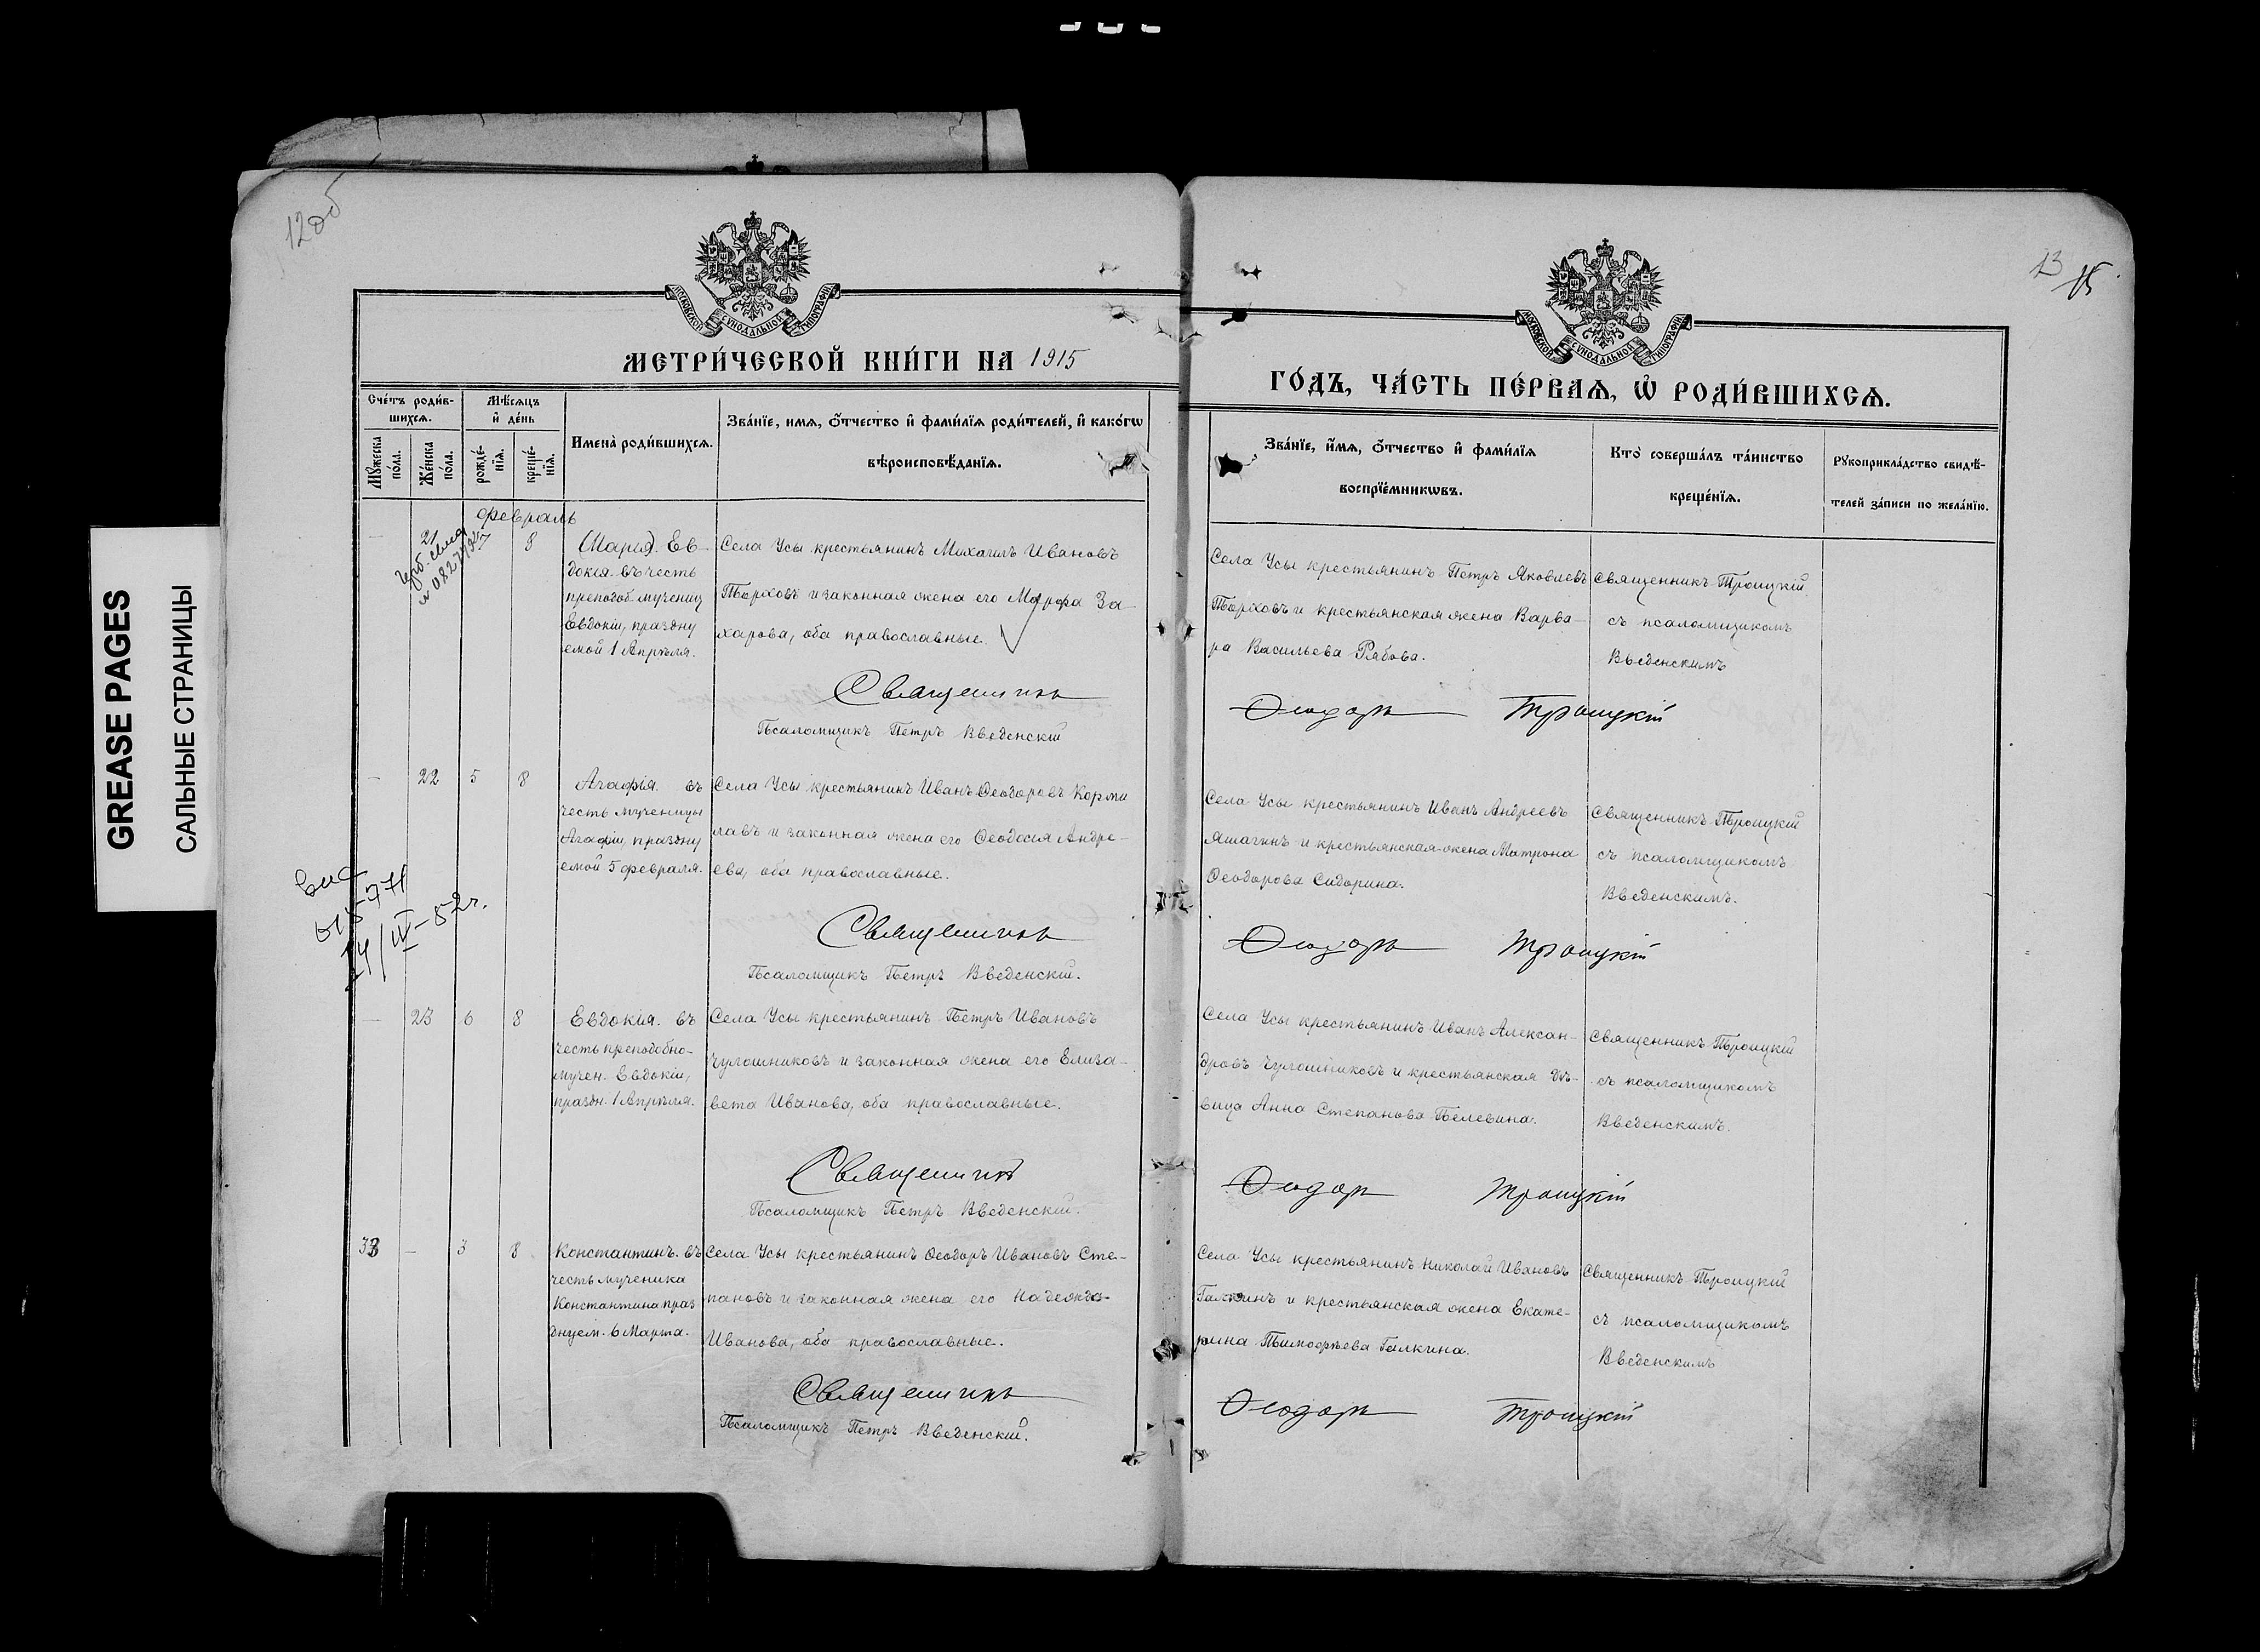 12об
13
МОСКОВСКОЙ СѴНОДАЛЬНОЙ ТИПОГРАФІИ
МОСКОВСКОЙ СѴНОДАЛЬНОЙ ТИПОГРАФІИ
МЕТРИ́ЧЕСКОЙ КНИ́ГИ НА 1915
ГО́ДЪ, ЧА́СТЬ ПЕ́РВАѦ, Ѡ҆ РОДИ́ВШИХСѦ.
Сче́тъ роди́в-
шихсѧ.
Мѣ́сѧцъ
и҆ де́нь
Мꙋ́жеска
по́ла.
Же́нска
по́ла.
рожде́-
нїѧ.
креще́-
нїѧ.
Имена̀ роди́вшихсѧ.
Зва́нїе, имѧ, ѻ҆́тчество и҆ фами́лїѧ роди́телей, и҆ како́гѡ
вѣроисповѣ́данїѧ.
Зва́нїе, и҆́мѧ, ѻ҆́тчество и҆ фами́лїѧ
воспрїе́мникѡвъ.
Кто̀ соверша́лъ та́инство
креще́нїѧ.
Рꙋкоприкла́дство свидѣ́-
телей за́писи по жела́нїю.
GREASE PAGES
САЛЬНЫЕ СТРАНИЦЫ
Февраль
— 21 8
(Марія). Ев-
докія. въ честь
препогоб. мучениц
Евдокіи, праздну
емой 1 Апрѣля.
Села Усы крестьянинъ Михаилъ Ивановъ
Торховъ и законная жена его Марфа За-
харова, оба православные.
Священникъ
Псаломщикъ Петръ Введенскій
Села Усы крестьянинъ Петръ Яковлевъ
Торховъ и крестьянская жена Варва-
ра Васильева Рябова.
Священникъ Троицкій
съ псаломщикомъ
Введенскимъ
Ѳеодоръ Троицкій
— 22 5 8
Агафія. въ
честь мученицы
Агафіи, праздну
емой 5 февраля.
Села Усы крестьянинъ Иванъ Ѳеодоровъ Корми
лавъ и законная жена его Ѳеодосія Андре-
ева, оба православные.
Священникъ
Псаломщикъ Петръ Введенскій.
Села Усы крестьянинъ Иванъ Андреевъ
Ямагинъ и крестьянская жена Матрона
Ѳеодорова Сидорина.
Священникъ Троицкій
съ псаломщикомъ
Введенскимъ.
Ѳеодоръ Троицкій
24/III-52г.
— 23 6 8
Евдокія. въ
честь преподобно-
мучен. Евдокіи,
праздн. 1 Апрѣля.
Села Усы крестьянинъ Петръ Ивановъ
Чулошниковъ и законная жена его Елиза-
вета Иванова, оба православные.
Священникъ
Псаломщикъ Петръ Введенскій.
Села Усы крестьянинъ Иванъ Алексан-
дровъ Чулошниковъ и крестьянская дѣ-
вица Анна Степанова Пелевина.
Священникъ Троицкій
съ псаломщикомъ
Введенскимъ.
Ѳеодоръ Троицкій
33 — 3 8
Константинъ. въ
честь мученика
Константина праз
днуем. 6 Марта.
Села Усы крестьянинъ Ѳеодоръ Ивановъ Сте-
пановъ и законная жена его Надежда
Иванова, оба православные.
Священникъ
Псаломщикъ Петръ Введенскій.
Села Усы крестьянинъ Николай Ивановъ
Галкинъ и крестьянская жена Екате-
рина Тимофѣева Галкина.
Священникъ Троицкій
съ псаломщикомъ
Введенскимъ
Ѳеодоръ Троицкій